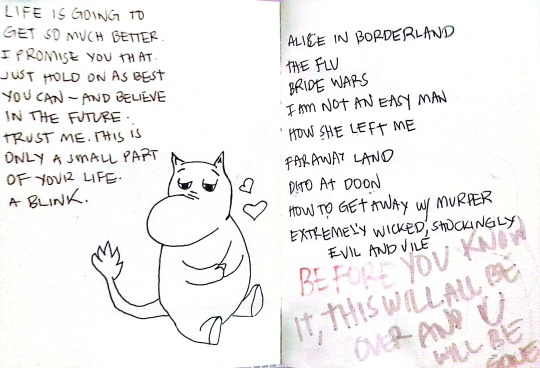 LIFE IS GOING TO
GET SO MUCH BETTER.
I PROMISE YOU THAT.
JUST HOLD ON AS BEST
YOU CAN – AND BELIEVE
IN THE FUTURE.
TRUST ME. THIS IS
ONLY A SMALL PART
OF YOUR LIFE.
A BLINK.
ALICE IN BORDERLAND
THE FLU
BRIDE WARS
I AM NOT AN EASY MAN
HOW SHE LEFT ME
FARAWAY LAND
DITO AT DOON
HOW TO GET AWAY W/ MURDER
EXTREMELY WICKED, SHOCKINGLY
EVIL AND VILE
BEFORE YOU KNOW
IT, THIS WILL ALL BE
OVER AND U
WILL BE